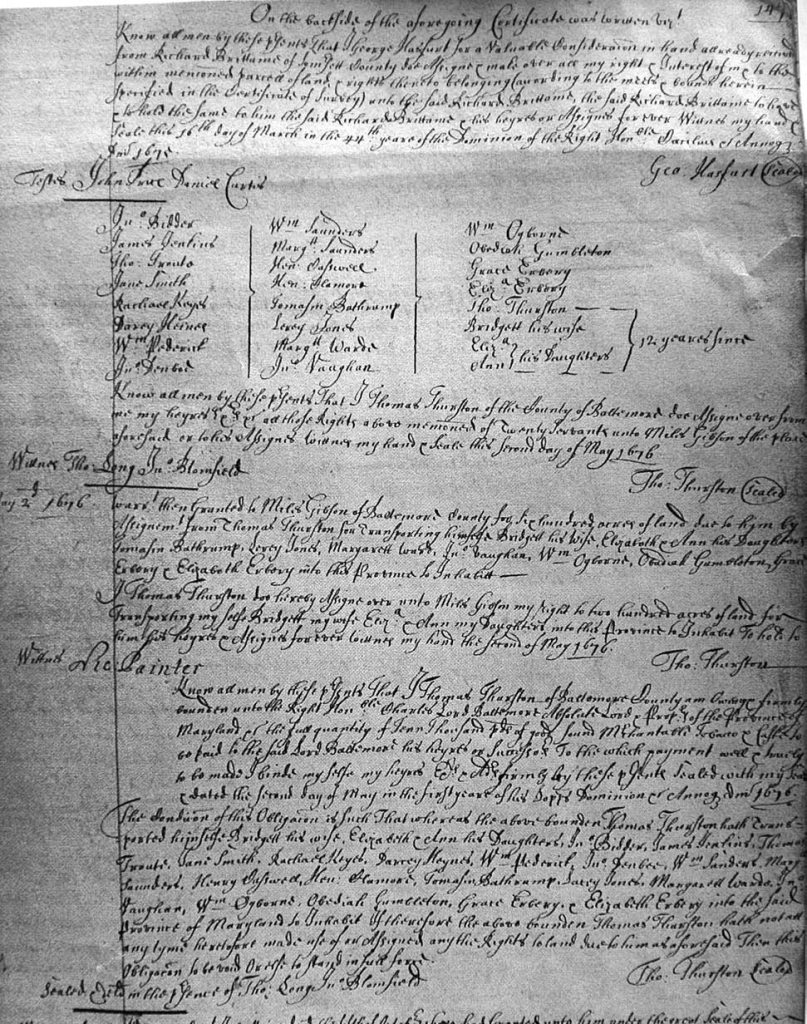 147
On the backside of the aforegoing Certificate was written vizt
Know all men by these pſents that I George Harfurt for a Valuable Consideraion in hand already received
from Richard Brittame of County doe Assigne & make over all my right & Interest of in & to the
within mentioned parcell of land & rights thereto belonging (according to the meets & bounds herein
specified in the Certificate of Survey) unto the said Richard Brittame, the said Richard Brittame to have
& to hold the same to him the said Richard Brittame & his heyres or Assignes for ever Witnes my hand &
Seale this 16th day of March in the 44th yeare of the Dominion of the Right Honble Cæcilius & Annoqz
Dni 1675
Geo. Harfurt Sealed
Testes John Daniel Curtis
Jno. Bidder
James Jenkins
Tho: Troute
Jane Smith
Rachael Keyes
Darcy Heines
Wm Pederick
Jno Denboe
Wm Saunders
Margtt Saunders
Hen: Oaswell
Hen: Elamore
Tomasin Bathrump
Lecey Jones
Margtt Warde
Jno Vaughan
Wm Ogborne
Obediah Gumbleton
Grace Erbery
Eliza Erbery
Tho: Thurston
Bridgett his wife
Eliza
Ann his Daughters
12 yeares since
Know all men by these pſents That I Thomas Thurston of the County of Baltemore doe Assigne over from
me my heyres &c all those Rights above mentioned of Twenty Servants unto Miles Gibson of the place
aforesaid or to his Assignes witnes my hand & Seale this second day of May 1676
Tho: Thurston Sealed
Witnes Tho: Long Jno Blomfield
May 2d 1676
Warrt then Granted to Miles Gibson of Baltemore County for six hundred acres of land due to him by
Assignemt from Thomas Thurston for Transporting himselfe Bridgett his Wife, Elizabeth & Ann his Daughters
Tomasin Bathrump, Lecey Jones, Margarett Ward, Jno Vaughan, Wm Ogborne, Obediah Gumbleton, Grace
Erbery & Elizabeth Erbery into this Province to Inhabitt
I Thomas Thurston doe hereby Assigne over unto Miles Gibson my right to two hundred acres of land for
Transporting my selfe Bridgett my wife Eliza & Ann my Daughters into this Province to Inhabit To hold to
him his heyres & Assignes for ever witnes my hand the second of May 1676.
Tho: Thurston
Wittnes Painter
Know all men by these pſents That I Thomas Thurston of Baltemore County am Owing & firmly
bounden unto the Right Honble Charles Lord Baltemore Absolute Lord & Propr of the Province of
Maryland &c the full quantity of Tenn Thousand pds of good sound Mrchantable Tobacco & Caske to
be paid to the said Lord Baltemore his heyres or Successors To the which payment well & truely
to be made I binde my selfe my heyres Exrs & Admrs firmly by these pſents Sealed with my Seale
& dated the second day of May in the first yeare of his Lopps Dominion & Annoqz dom 1676
The Condicion of this Obligacon is such That whereas the above bounden Thomas Thurston hath Trans-
ported himselfe Bridgett his wife, Elizabeth & Ann his Daughters, Jno Bidder, James Jenkins, Thomas
Troute, Jane Smith, Rachael Keyes, Darcey Heynes, Wm Pederick, Jno Denboe, Wm Sanders, Margt
Saunders, Henry Oaswell, Hen: Elamore, Tomasin Bathrump, Lacey Jones, Margarett Warde, Jno
Vaughan, Wm Ogborne, Obediah Gumbleton, Grace Erbery, & Elizabeth Erbery into the said
Province of Maryland to Inhabit If therefore the above bounden Thomas Thurston hath not att
any tyme heretofore made use of or Assigned any the Rights to land due to him as aforesaid Then this
Obligacon to be void Or else to stand in full force
Tho: Thurston Sealed
Sealed & deld in the pſence of Tho: Long Jno Blomfield